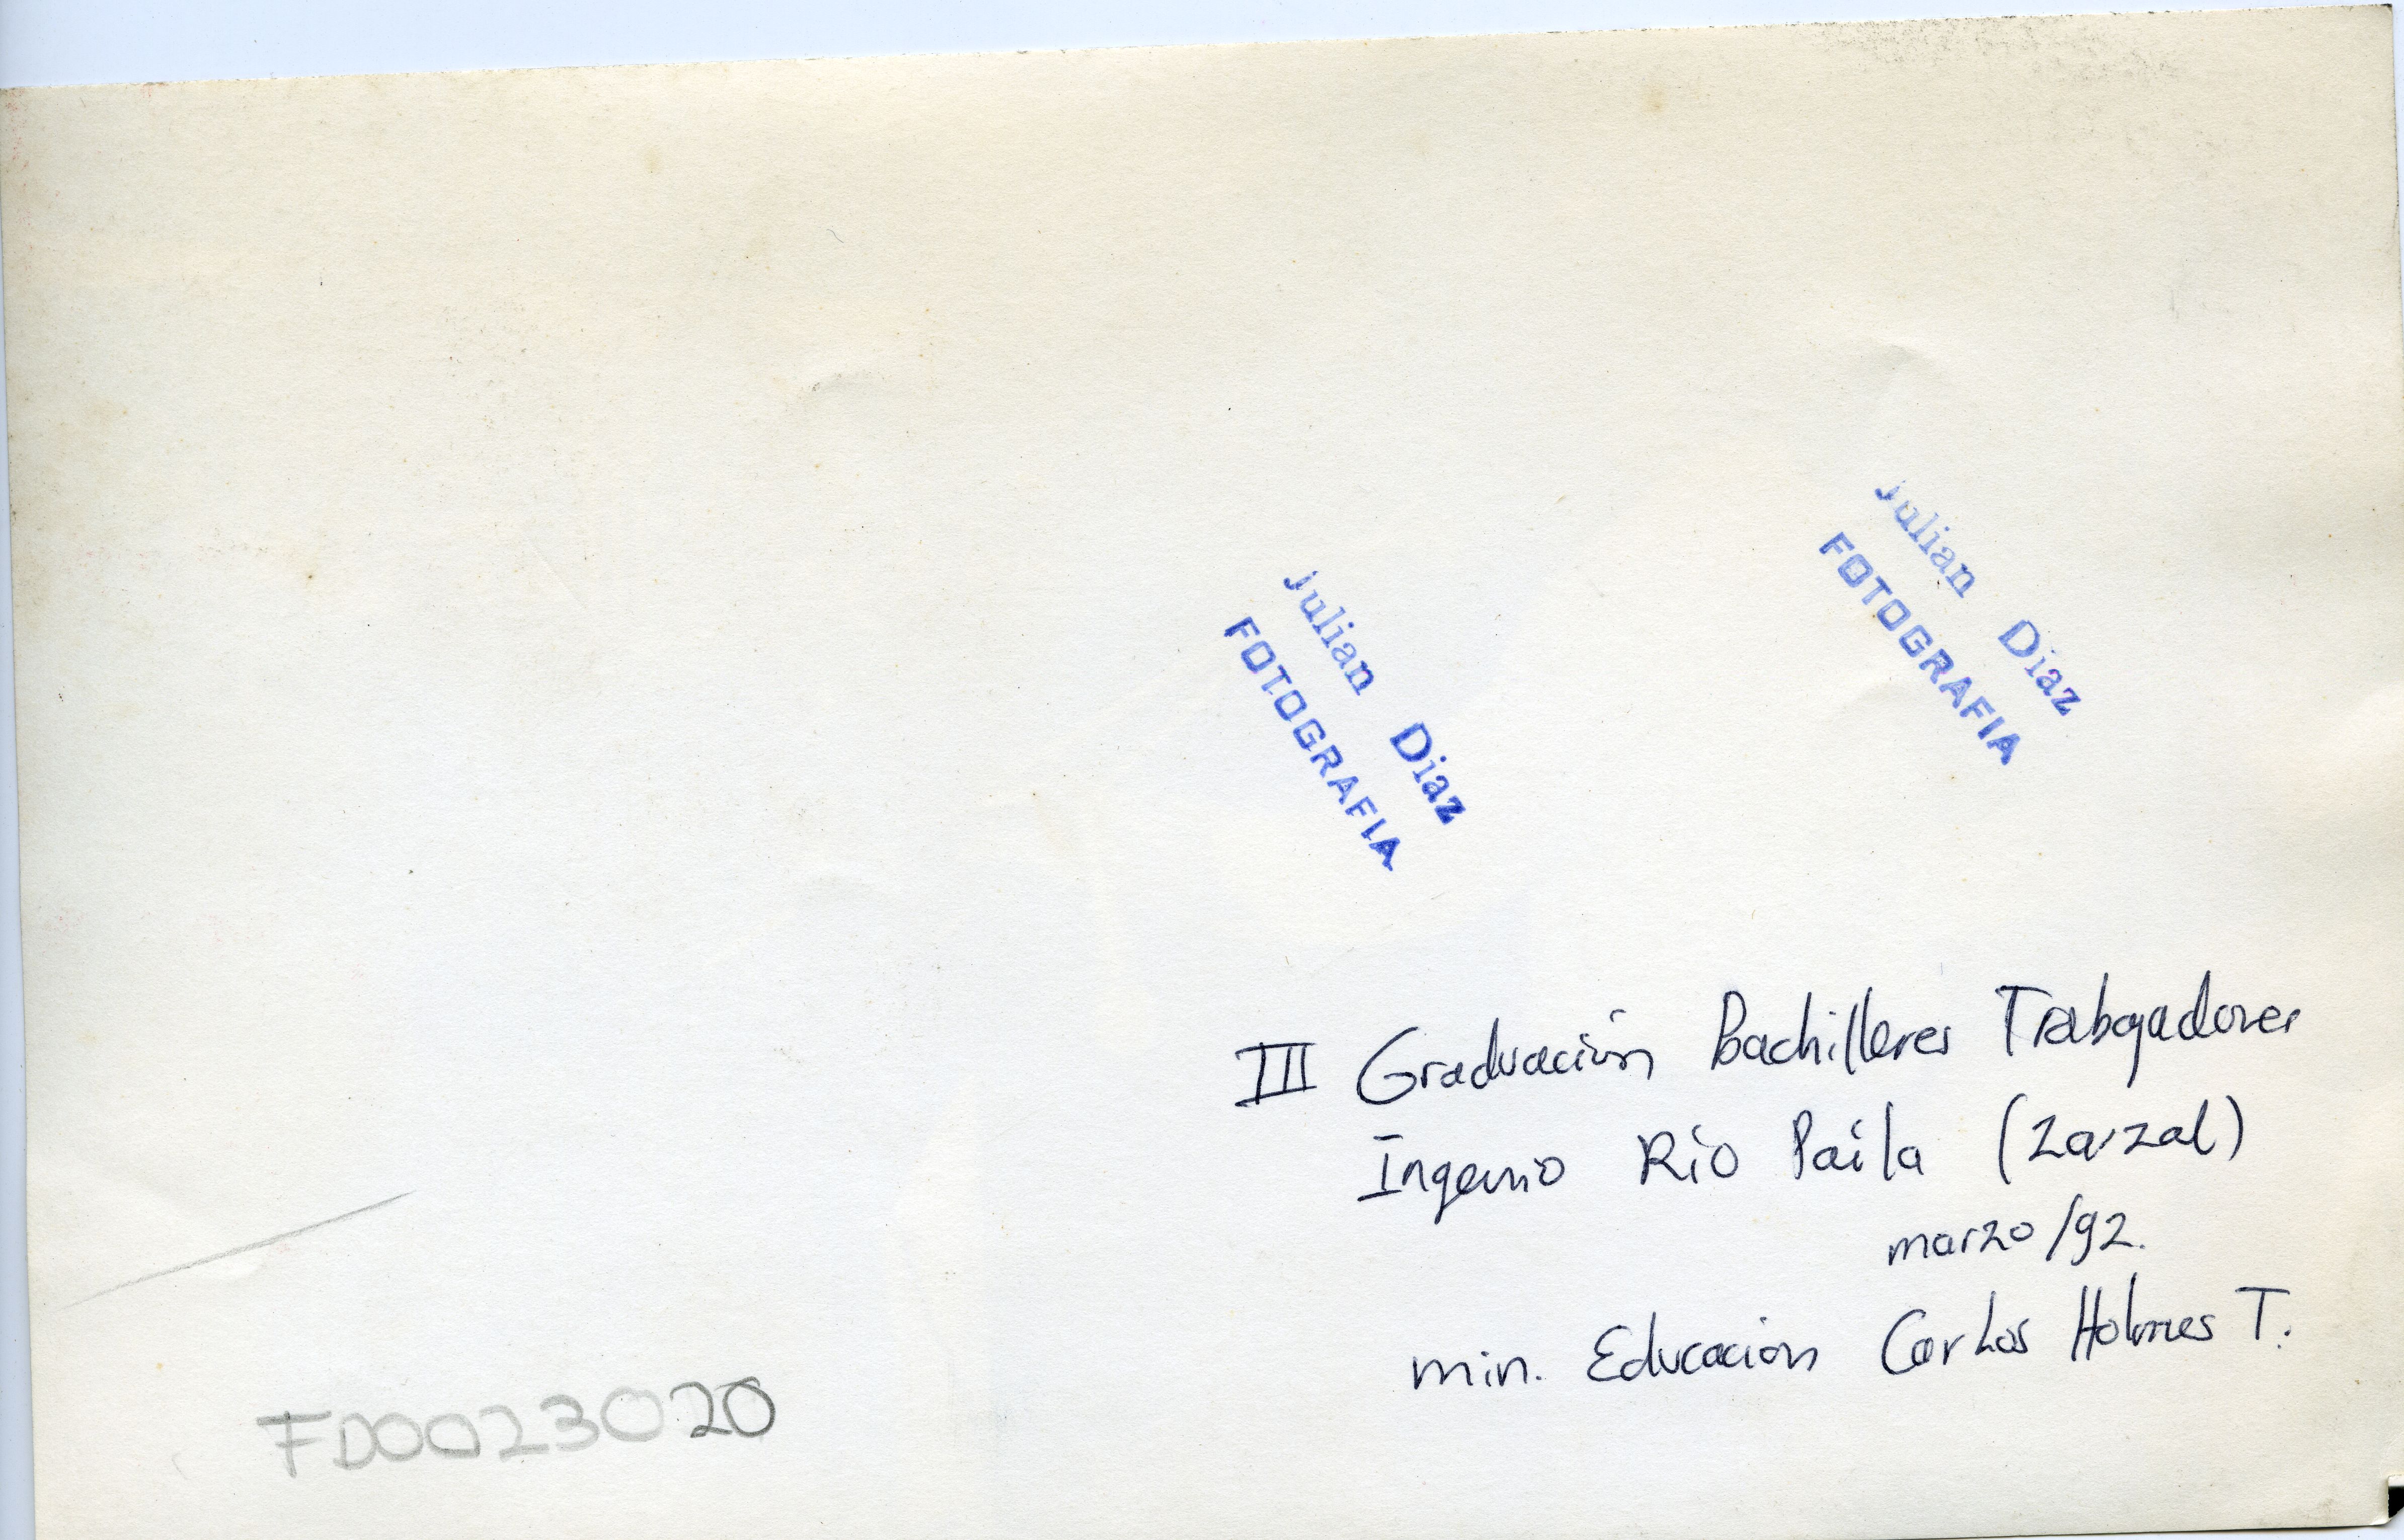 Julian Diaz
FOTOGRAFIA
Julian Diaz
FOTOGRAFIA
III Graduación Bachilleres Trabajadores
Ingenio Río Paila (Zarzal)
marzo/92.
min. Educación Carlos Holmes T.
FD0023020